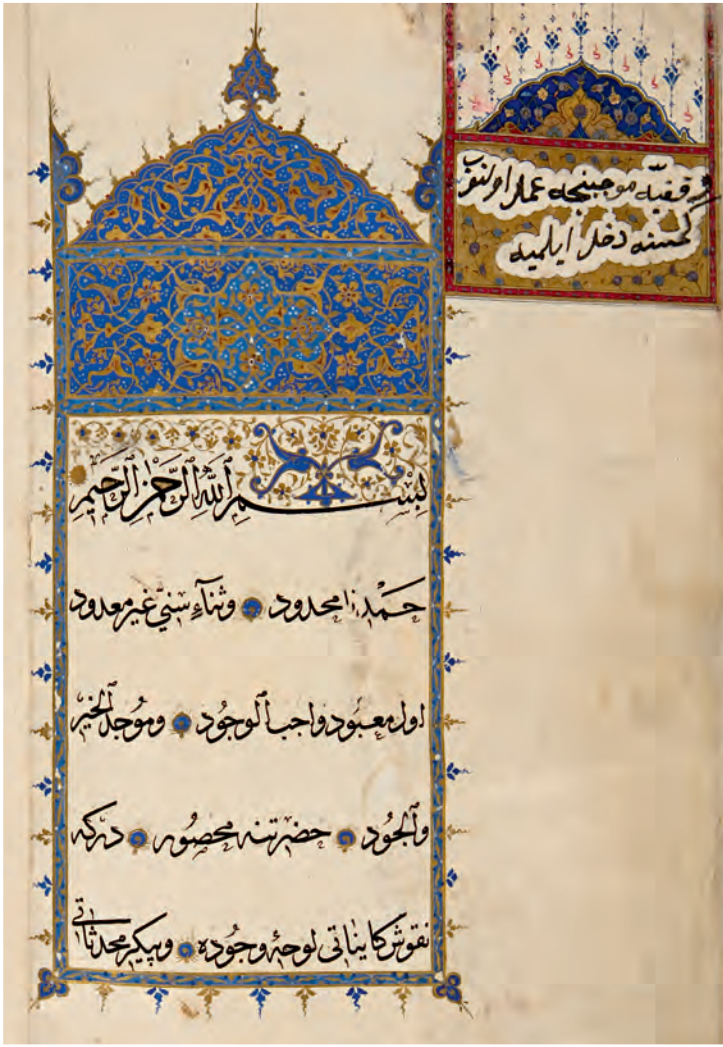 وقفیه موجبنجه عمل اولنوب
كمسنه دخل ایلمیه
بِسْمِ ٱللّٰهِ ٱلرَّحْمٰنِ ٱلرَّحِيمِ
حمد نامحدود وثناء سنی غیر معدود
اول معبود واجب ٱلوجود وموجد ٱلخیر
وٱلجود حضرتنه محصور دركه
نقوش كایناتی لوحۀ وجوده وپیكر محدثاتی